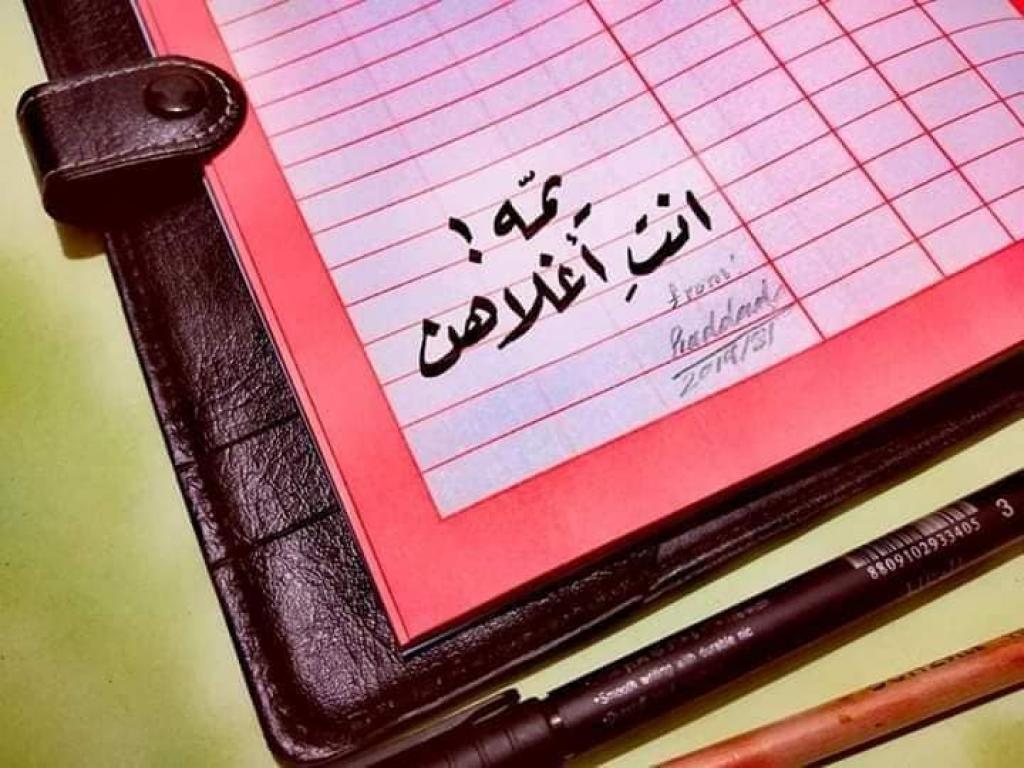 يمّه !
انتِ أغلاهن
from
Raddad
2019/31
8809102933405
3
"Smooth writing with durable nib